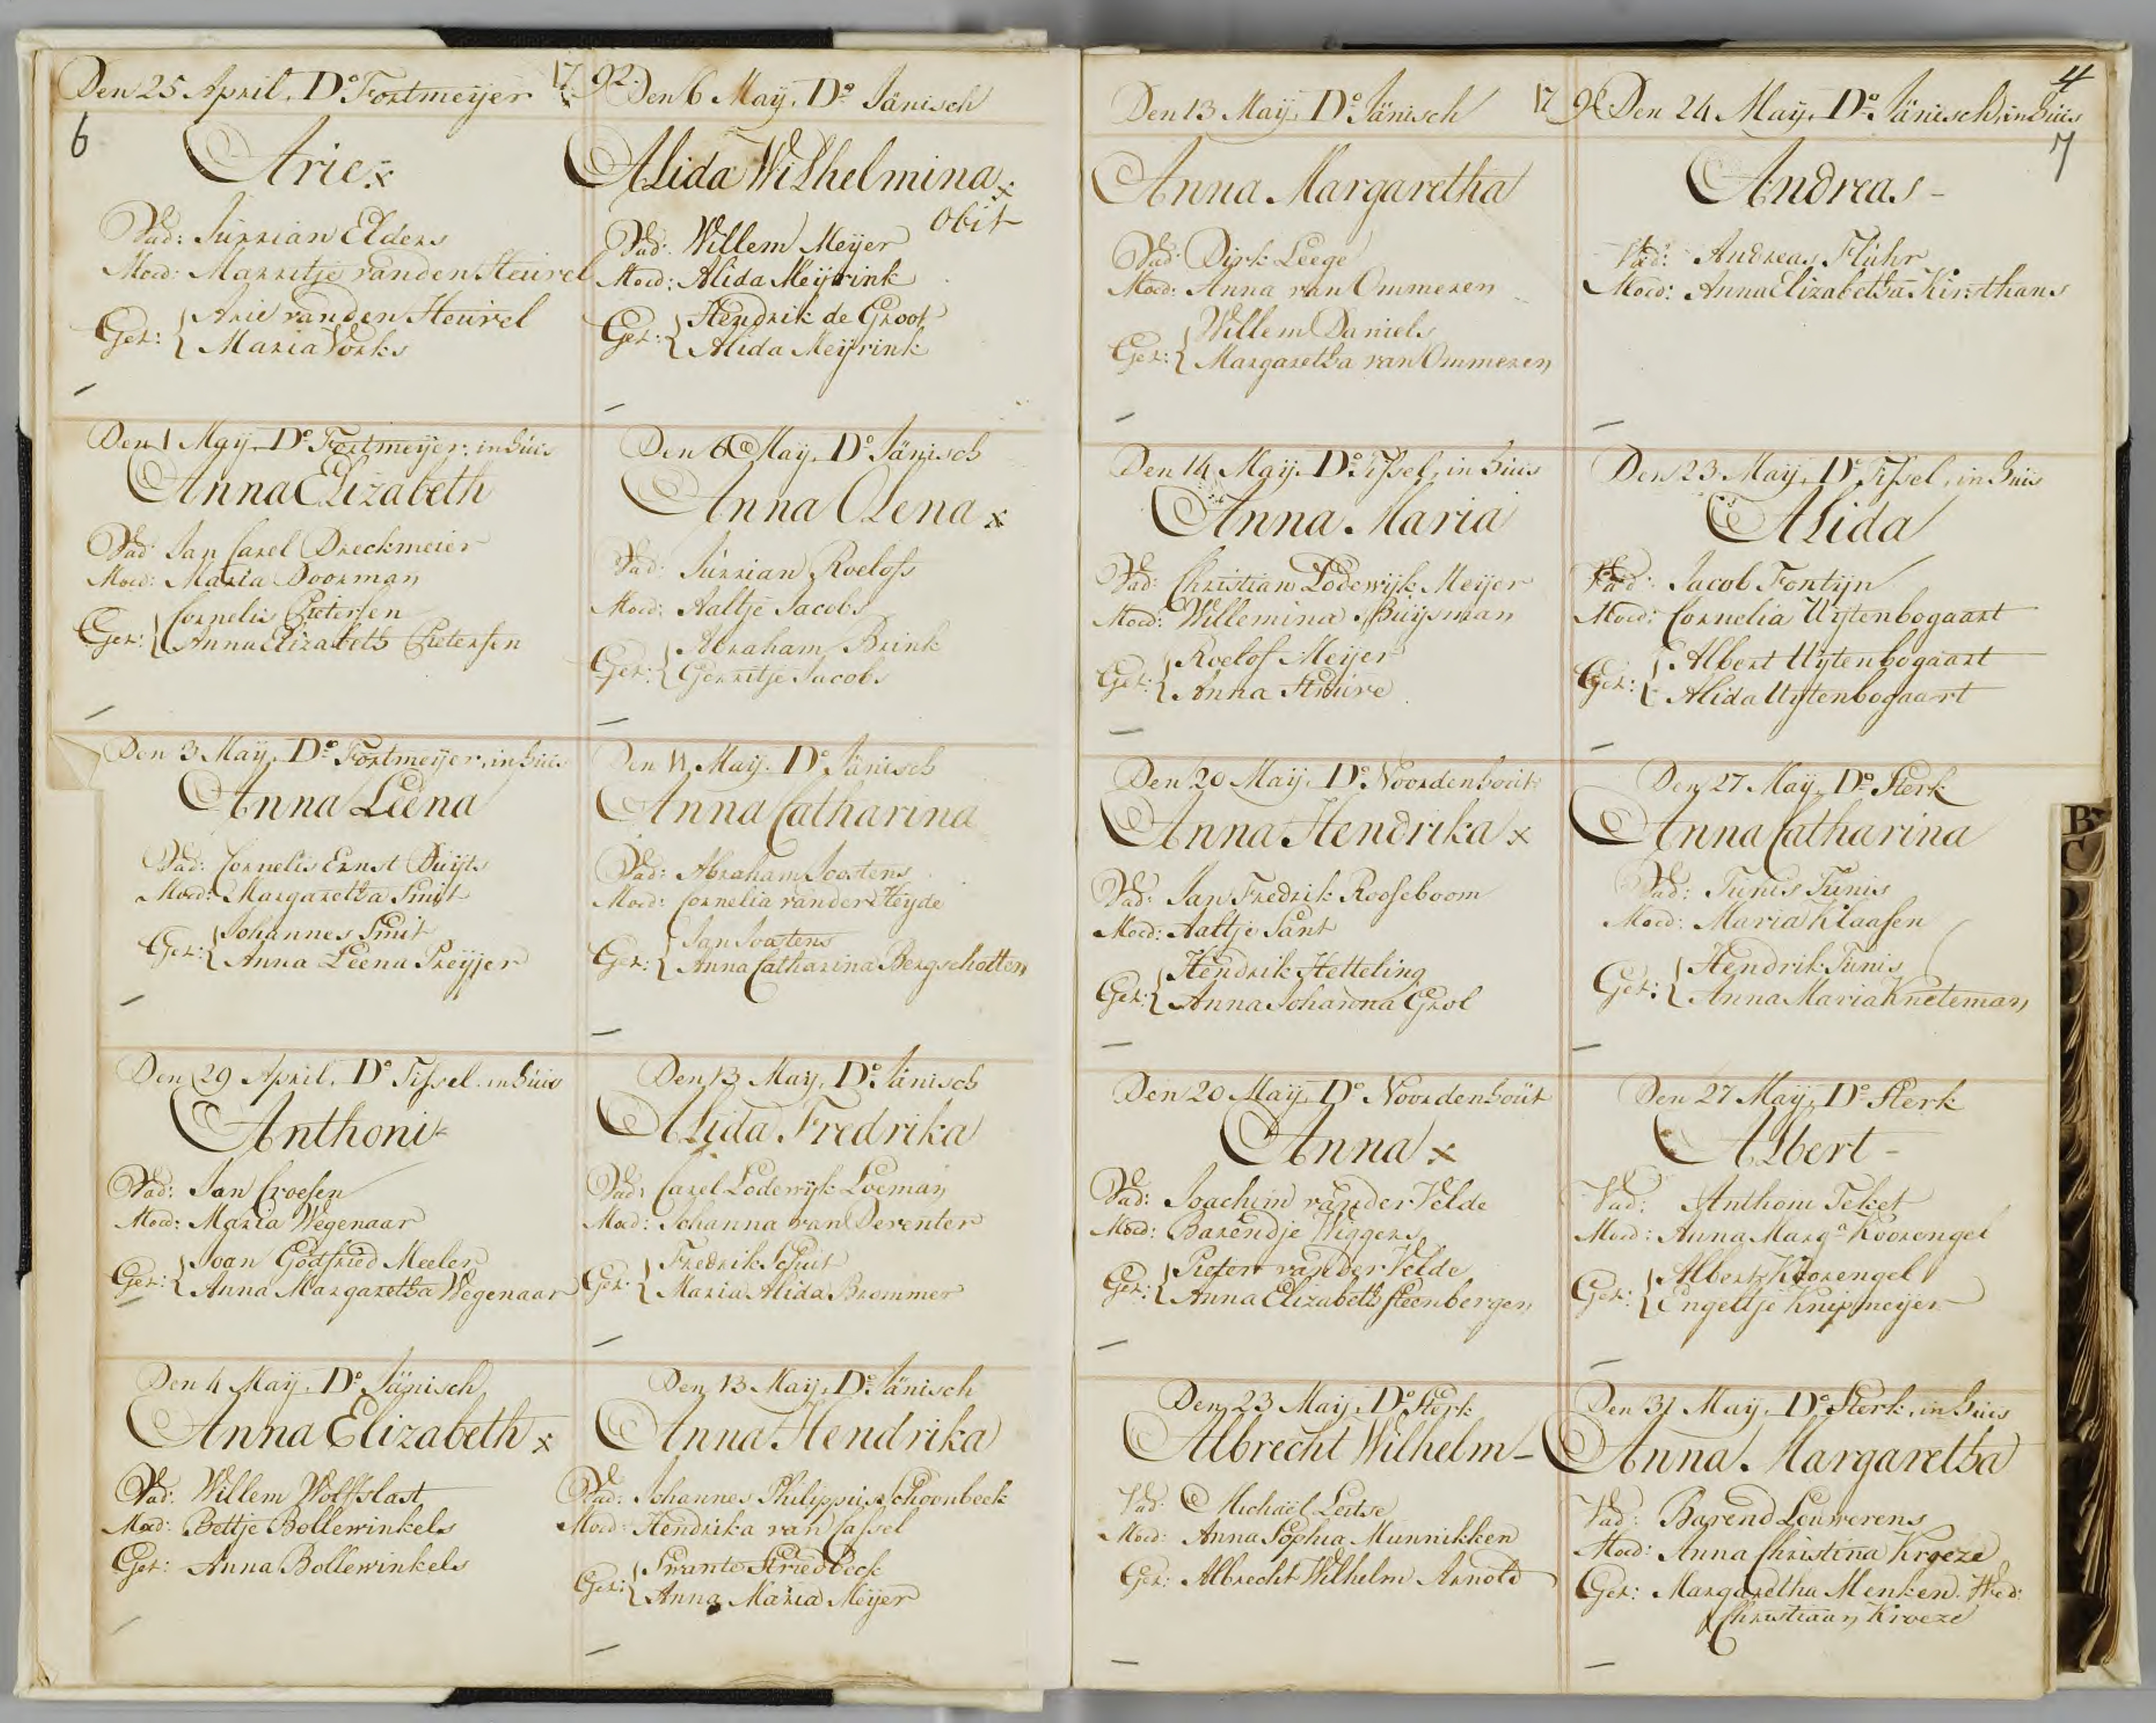 Den 25 April, Do Fortmeijer
1792
6
Arie x
Vad: Jurrian Elders
Moed: Marritje van den Heuvel
Get: { Arie van den Heuvel
Maria Vorks
Den 1 Maij, Do Fortmeijer, in huis
Anna Elizabeth
Vad: Jan Carel Dreckmeier
Moed: Maria Doorman
Get: { Cornelis Pietersen
Anna Elizabeth Pietersen
Den 3 Maij, Do Fortmeijer, in huis
Anna Leena
Vad: Cornelis Ernst Duijts
Moed: Margaretha Smit
Get: { Johannes Smit
Anna Leena Preijjer
Den 29 April, Do Tissel, in huis
Anthoni
Vad: Jan Croesen
Moed: Maria Wegenaar
Get: { Joan Godfried Meeler
Anna Margaretha Wegenaar
Den 4 Maij, Do Jänisch
Anna Elizabeth x
Vad: Willem Wolffslast
Moed: Bettje Bollewinkels
Get: Anna Bollewinkels
Den 6 Maij, Do Jänisch
Alida Wilhelmina x
obit
Vad: Willem Meijer
Moed: Alida Meijrink
Get: { Hendrik de Groot
Alida Meijrink
Den 6 Maij, Do Jänisch
Anna Olena x
Vad: Jurrian Roelofs
Moed: Aaltje Jacobs
Get: { Abraham Brink
Gerritje Jacobs
Den 11 Maij, Do Jänisch
Anna Catharina
Vad: Abraham Joostens
Moed: Cornelia van der Heyde
Get: { Jan Joostens
Anna Catharina Bergschotten
Den 13 Maij, Do Jänisch
Alida Fredrika
Vad: Carel Lodewijk Loeman
Moed: Johanna van Deventer
Get: { Fredrik Schuit
Maria Alida Brommer
Den 13 Maij, Do Jänisch
Anna Hendrika
Vad: Johannes Philippus Schoonbeek
Moed: Hendrika van Cassel
Get: { Swante Striedbeck
Anna Maria Meijer
Den 13 Maij, Do Jänisch
1792
Anna Margaretha
Vad: Dirk Leege
Moed: Anna van Ommeren
Get: { Willem Daniels
Margaretha van Ommeren
Den 14 Maij, Do Tissel, in huis
Anna Maria
Vad: Christian Lodewijk Meijer
Moed: Willemina Buijsman
Get: { Roelof Meijer
Anna
Den 20 Maij, Do Noordenhout
Anna Hendrika x
Vad: Jan Fredrik Rooseboom
Moed: Aaltje Sant
Get: { Hendrik Hetteling
Anna Johanna Grol
Den 20 Maij, Do Noordenhout
Anna x
Vad: Joachim van der Velde
Moed: Barendje Wiggers
Get: { Pieter van der Velde
Anna Elizabeth Steenbergen
Den 23 Maij, Do Sterk
Albrecht Wilhelm -
Vad: Michael Leitse
Moed: Anna Sophia Munnikken
Get: Albrecht Wilhelm Arnold
4
Den 24 Maij, Do Jänisch, in huis
7
Andreas -
Vad: Andreas Fluhr
Moed: Anna Elizabetha Kirsthans
Den 23 Maij, Do Tissel, in huis
Alida
Vad: Jacob Fontijn
Moed: Cornelia Uijtenbogaart
Get: { Albert Uijtenbogaart
Alida Uijtenbogaart
Den 27 Maij, Do Sterk
Anna Catharina
Vad: Tunis Tunis
Moed: Maria Klaasen
Get: { Hendrik Tunis
Anna Maria Kneteman
Den 27 Maij, Do Sterk
Albert -
Vad: Anthoni Teket
Moed: Anna Marga Koorengel
Get: { Albert Koorengel
Engeltje Knipmeijer
Den 31 Maij, Do Sterk, in huis
Anna Margaretha
Vad: Barend Louwerens
Moed: Anna Christina Kroeze
Get: Margaretha Menken. Wed:
Christiaan Kroeze
B
C
D